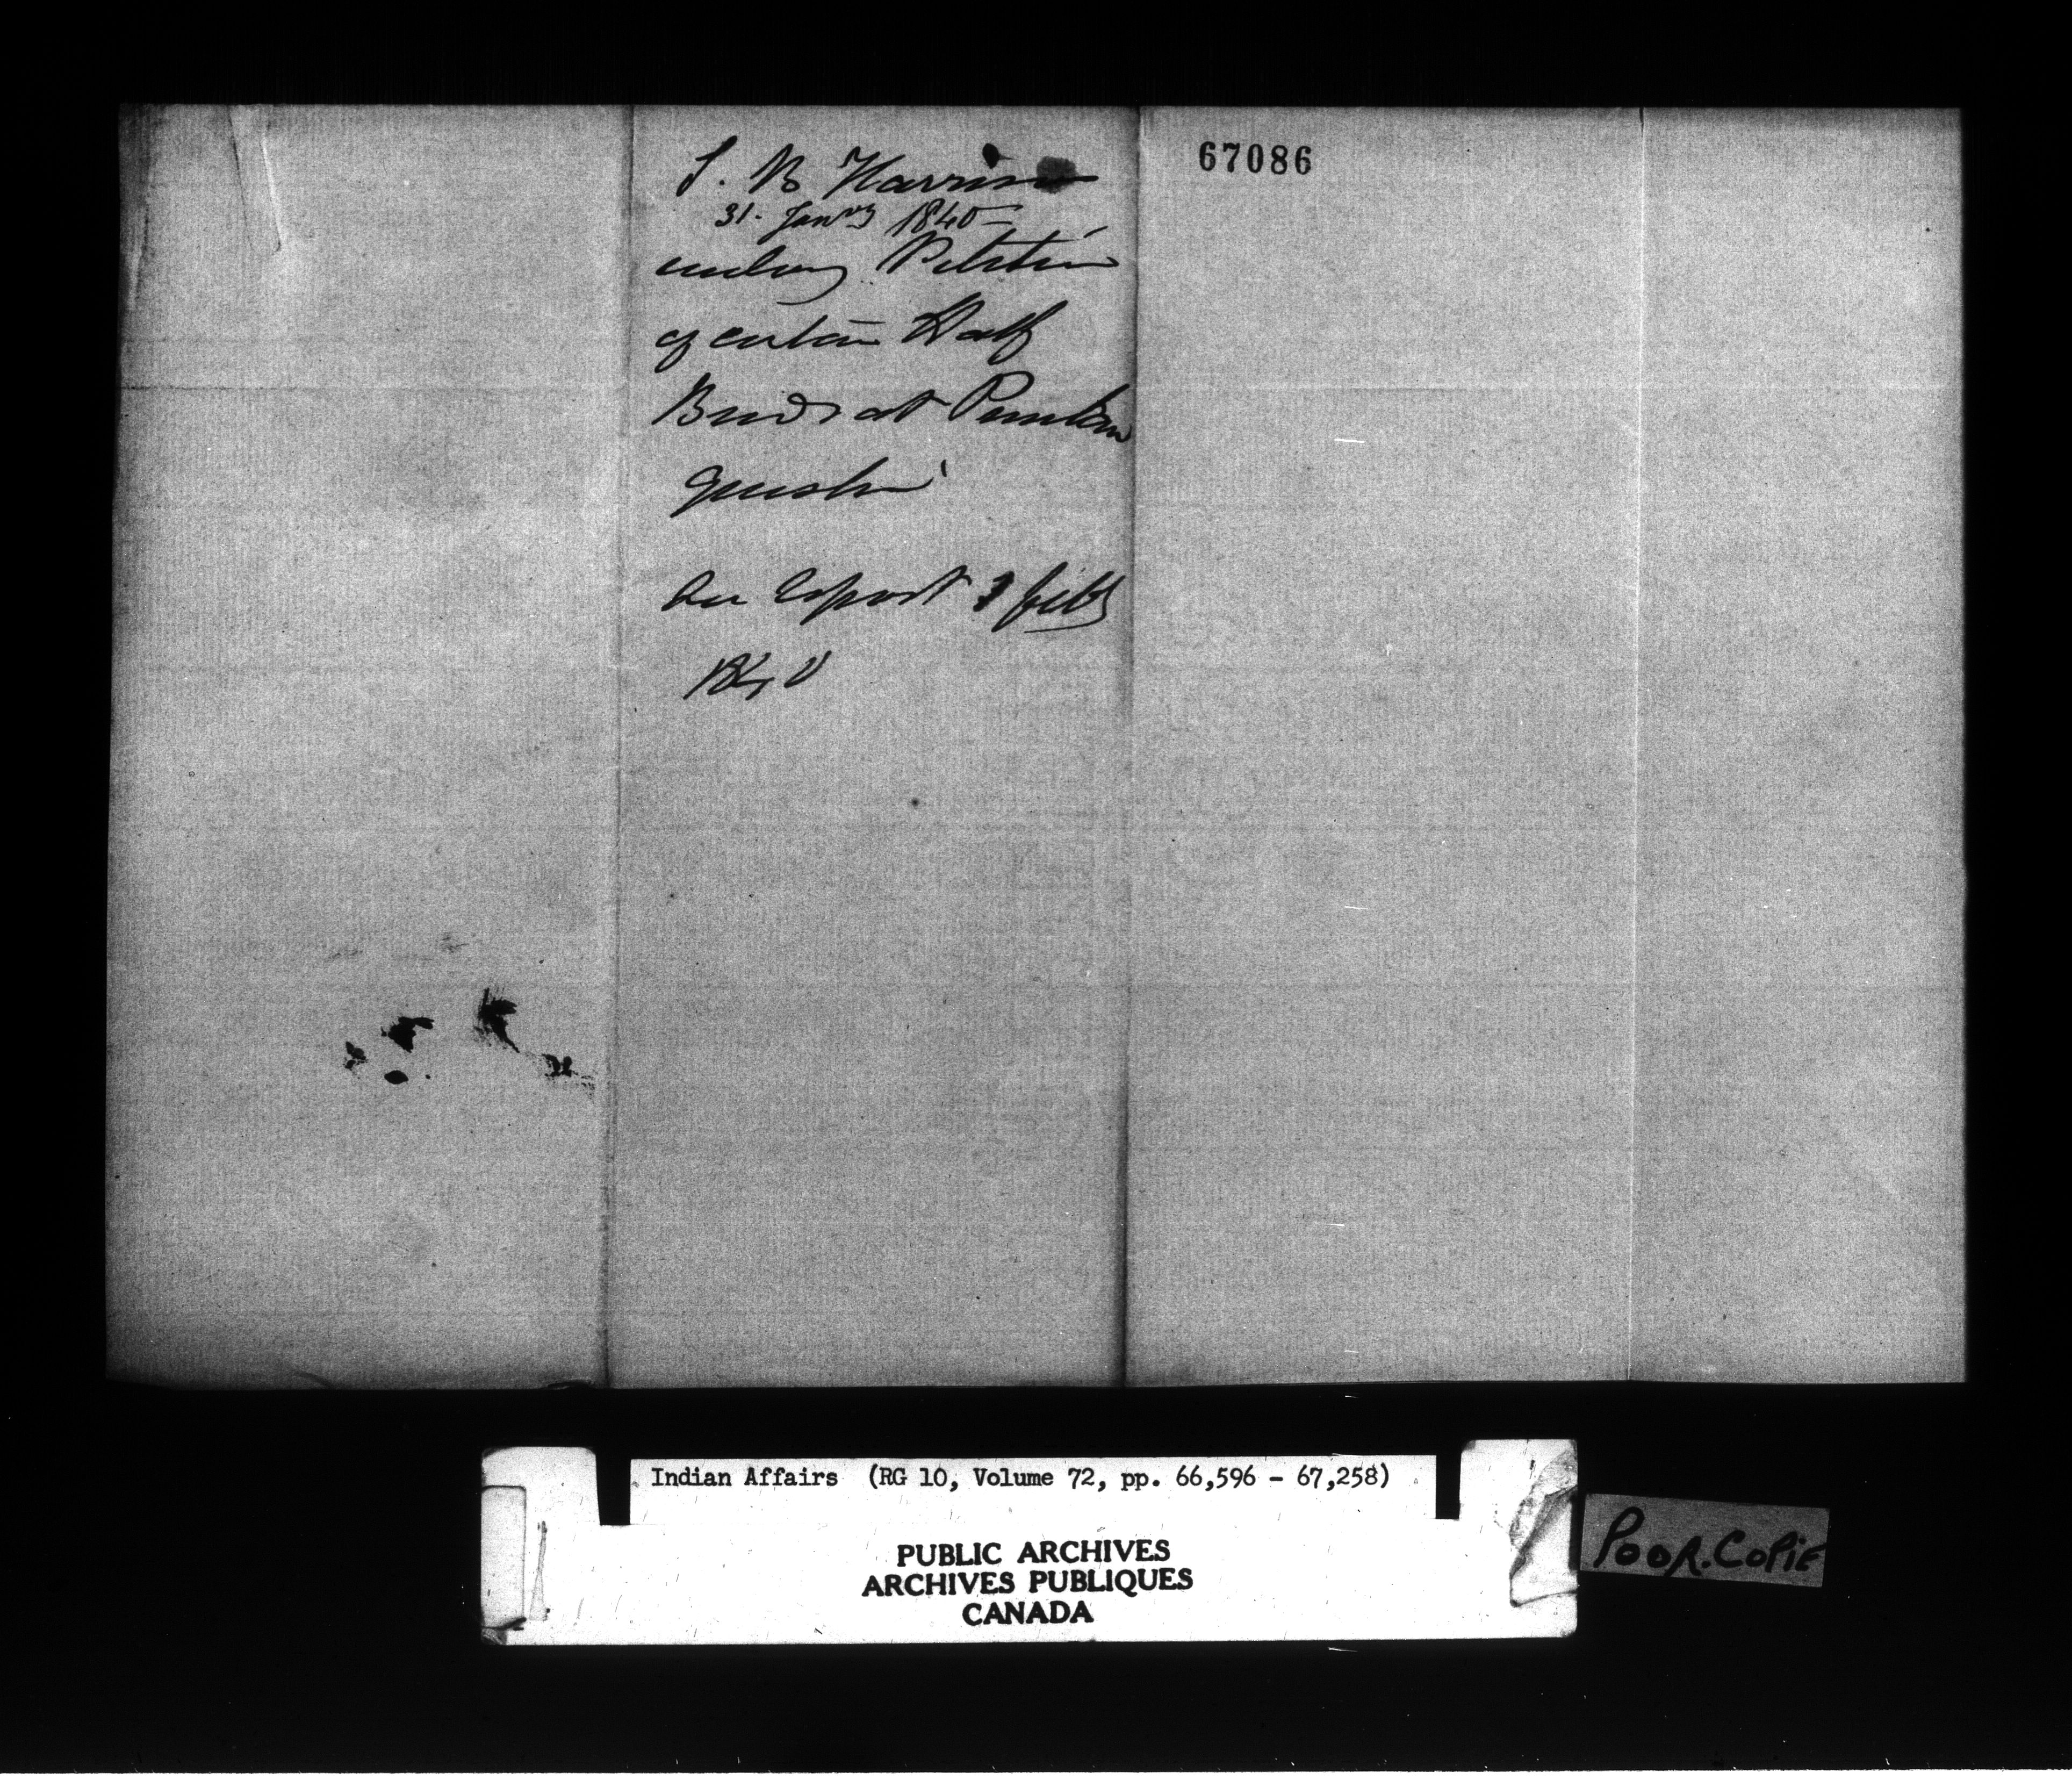 S. B Harrison
31. Jany 1840
enclosing Petition
of certain Half
Breeds at Penetan
guishin
See Report 3 feby
1840
67086
Indian Affairs (RG 10, Volume 72, pp. 66,596 - 67,258)
PUBLIC ARCHIVES
ARCHIVES PUBLIQUES
CANADA
POOR.COPiE